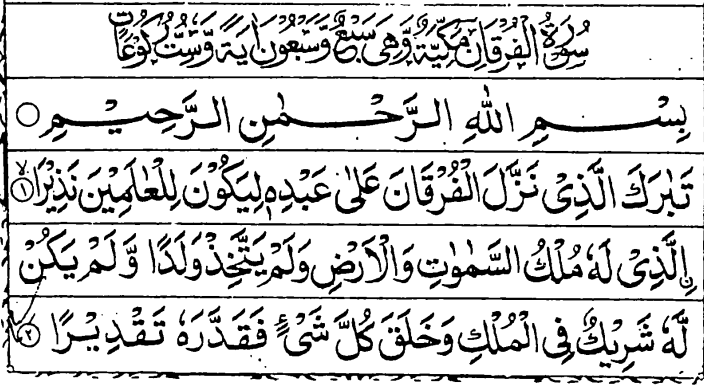 سُوْرَةُ الْفُرْقَانِ مَكِّيَّةٌ وَّهِيَ سَبْعٌ وَّسَبْعُوْنَ اٰيَةً وَّسِتُّ رُكُوْعَاتٍ
بِسْمِ اللّٰهِ الرَّحْمٰنِ الرَّحِيْمِ ○
تَبٰرَكَ الَّذِيْ نَزَّلَ الْفُرْقَانَ عَلٰى عَبْدِهٖ لِيَكُوْنَ لِلْعٰلَمِيْنَ نَذِيْرًا ۙ﴿۱﴾
ۨالَّذِيْ لَهٗ مُلْكُ السَّمٰوٰتِ وَالْاَرْضِ وَلَمْ يَتَّخِذْ وَلَدًا وَّلَمْ يَكُنْ
لَّهٗ شَرِيْكٌ فِي الْمُلْكِ وَخَلَقَ كُلَّ شَيْءٍ فَقَدَّرَهٗ تَقْدِيْرًا ﴿۲﴾